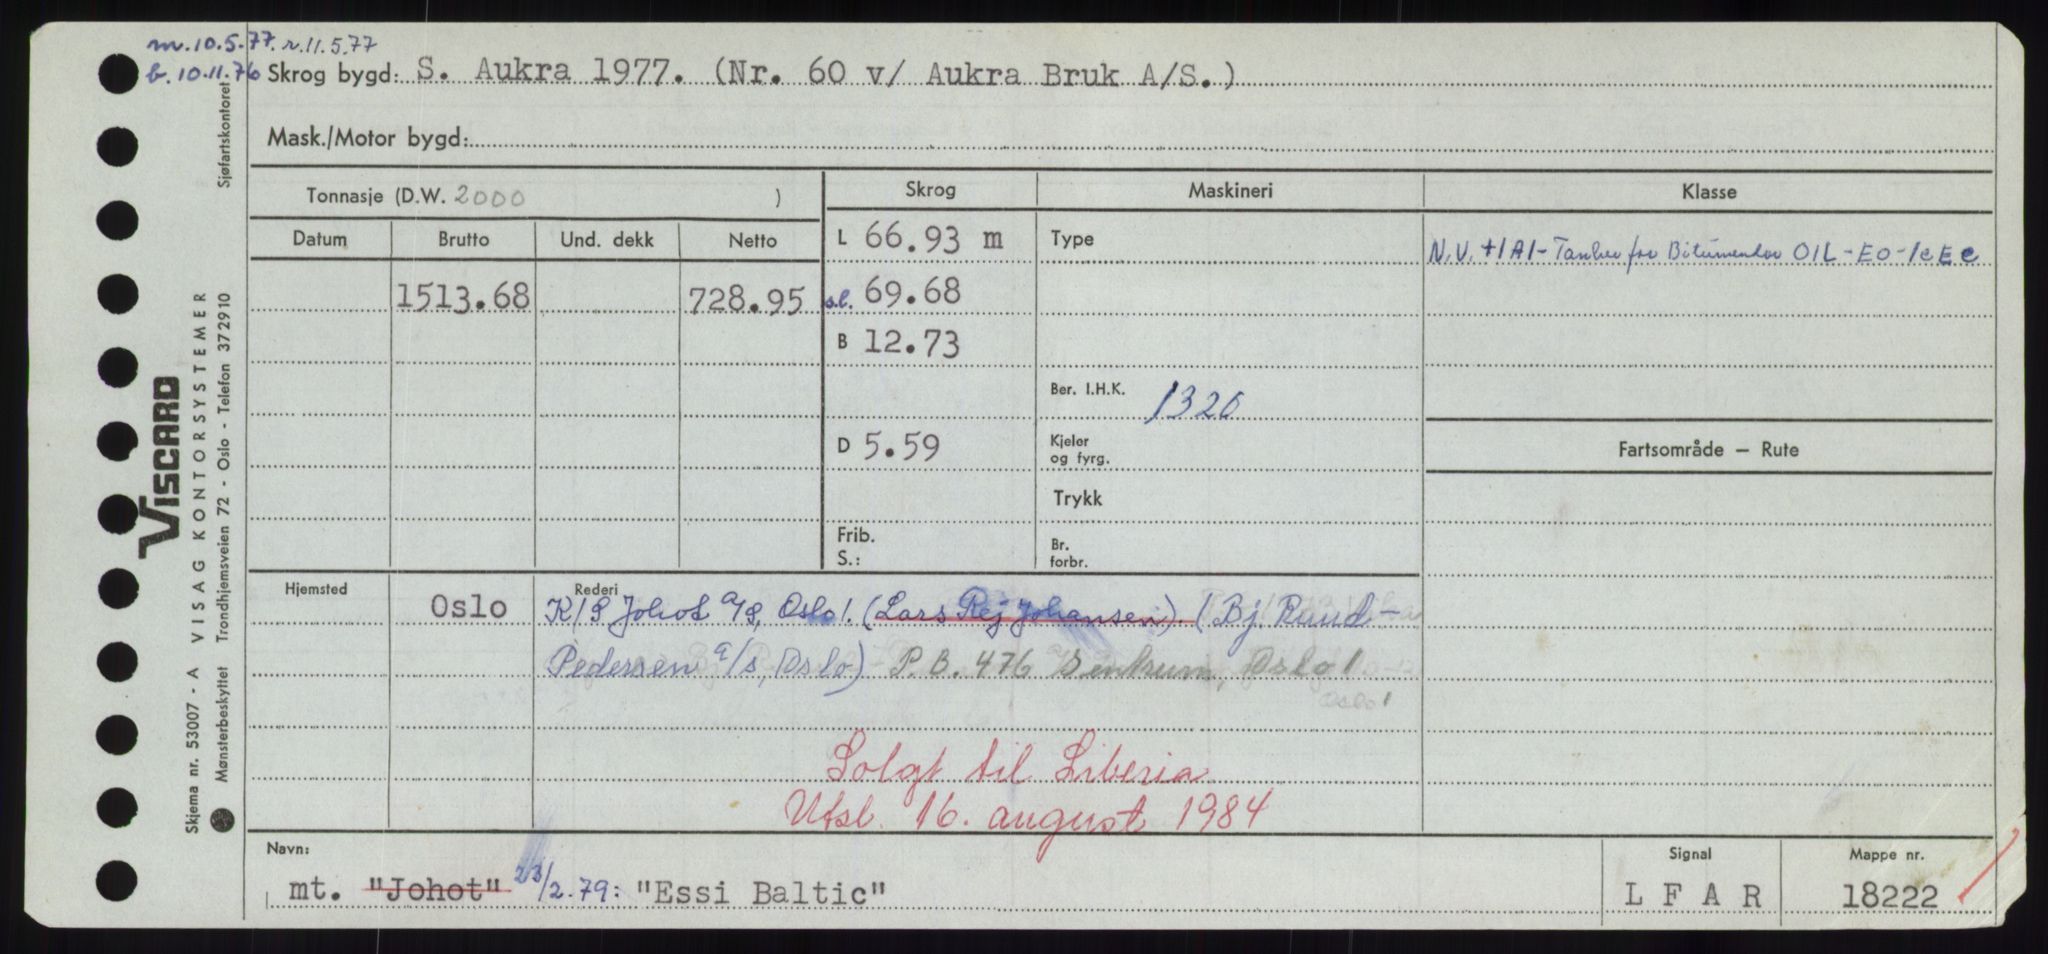 m. 10.5.77. r. 11.5.77
b. 10.11.76 Skrog bygd: S. Aukra 1977. (Nr. 60 v/ Aukra Bruk A/S.)
Mask./Motor bygd:
Tonnasje (D.W. 2000 )
Skrog Maskineri Klasse
Datum Brutto Und. dekk Netto
L 66.93 m Type
N.V. +1A1- Tanker for Bitumenlas OIL-EO-Ice C
1513.68 728.95 s.l. 69.68
B 12.73
Ber. I.H.K. 1320
D 5.59 Kjeler
og fyrg.
Fartsområde – Rute
Trykk
Frib.
S.:
Br.
forbr.
Hjemsted Rederi
Oslo K/S Johot a/s, Oslo 1. (Lars Rej Johansen). (Bj. Ruud-
Pedersen a/s, Oslo) P.B. 476 Sentrum, Oslo 1
Oslo 1
Solgt til Liberia
Utsl. 16. august 1984
Navn: Signal Mappe nr.
mt. "Johot" 23/2.79: "Essi Baltic" L F A R 18222
Sjøfartskontoret
VISCARD
VISAG KONTORSYSTEMER
Trondhjemsveien 72 - Oslo - Telefon 372910
Skjema nr. 53007 - A
Mønsterbeskyttet